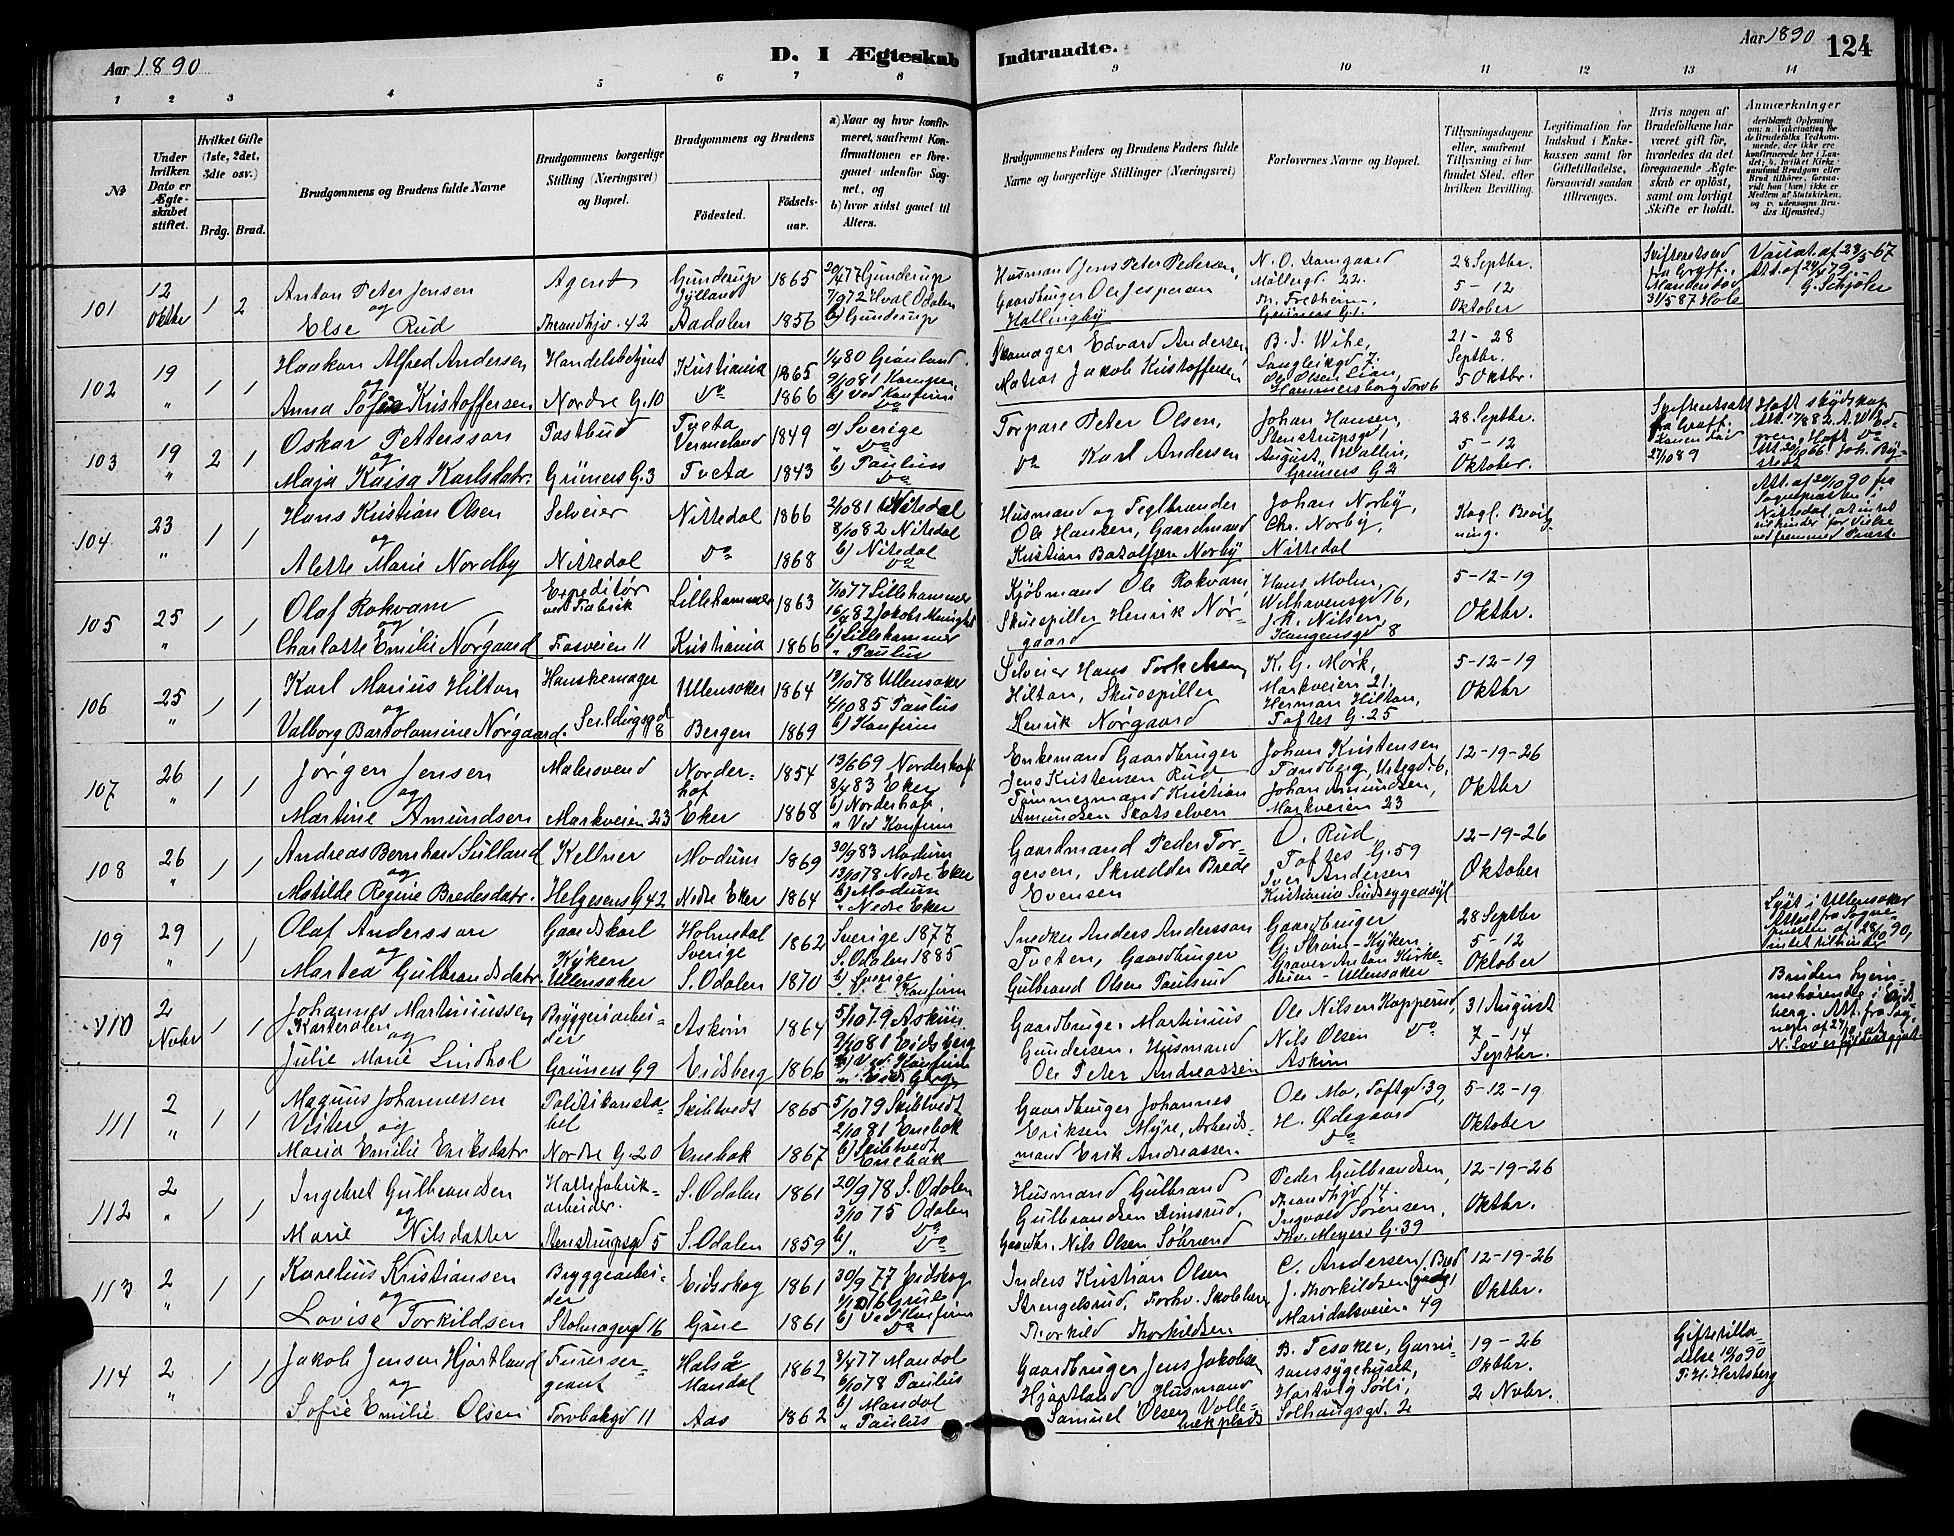 Aar 1890
D. I Ægteskab
Indtraadte.
Aar 1890
124
1 2 3 4 5 6 7 8 9 10 11 12 13 14
No
Under hvilken Dato er Ægteskabet stiftet.
Hvilket Gifte (1ste, 2det, 3die osv.)
Brdg. Brud.
Brudgommens og Brudens fulde Navne
Brudgommens borgerlige Stilling (Næringsvei) og Bopæl.
Brudgommens og Brudens
Fødested.
Fødselsaar.
a) Naar og hvor konfirmeret, saafremt Konfirmationen er foregaaet udenfor Sognet, og
b) hvor sidst gaaet til Alters.
Brudgommens Faders og Brudens Faders fulde Navne og borgerlige Stillinger (Næringsvei)
Forlovernes Navne og Bopæl.
Tillysningsdagene eller, saafremt Tillysning ei har fundet Sted, efter hvilken Bevilling.
Legitimation for Indskud i Enkekassen samt for Giftetilladelse, forsaavidt saadan tiltrænges.
Hvis nogen af Brudefolkene har været gift før, hvorledes da det foregaaende Ægteskab er opløst, samt om lovligt Skifte er holdt.
Anmærkninger
(deriblandt Oplysning om: a. Vakcination for de Brudefolks Vedkommende, der ikke ere konfirmerede her i Landet; b. hvilket Kirkesamfund Brudgom eller Brud tilhører, forsaavidt han (hun) ikke er Medlem af Statskirken, og c. udensogns Brudes Hjemsted.)
101 12 Oktbr 1 2
Anton Peter Jensen
og
Else Rud
Agent
Throndhjv. 42
Gunderup Jylland 1865
Aadalen 1856
20/4 77 Gunderup
7/9 72 Hval Odalen
b) Gunderup
Husmand Jens Peter Pedersen,
Gaardbruger Ole Jespersen
Hallingby
N. O. Damgaard
Møllergd. 22.
Th. Fretheim,
Grüners G. 1.
28 Septbr.
5-12
Oktober
Skifteretsed
fra Greff.
Mandens død
31/5 87 Hole
Vaccinat. af 28/5-67
Att. af 20/4 79.
G. Schjøler
102 19 " 1 1
Haakon Alfred Andersen
og
Anna Sofie Kristoffersen
Handelsbetjent
Nordre G. 10
Kristiania 1865
Do 1866
1/4 80 Grønland
9/10 81 Kampen
b) Ved Konfirm
Do
Skomager Edvard Andersen,
Matros Jakob Kristoffersen
B. S. Wihe,
Langleikgd 7.
Ole Olsen Lian,
Hammersborg Torv 6
21-28
Septbr.
5 Oktbr.
103 19 " 2 1
Oskar Pettersson
og
Maja Kaisa Karlsdatr.
Postbud
Grüners G. 3
Tveta Vermeland 1849
Tveta 1843
a) Sverige
" Do
b) Paulus
Do
Torpare Peter Olsen,
Do Karl Andersen
Johan Hansen,
Stenstrupsgd 1
August Wallin,
Grüners G 2
28 Septbr.
5-12
Oktober.
Skifteretsatt
fra Graff.
Konen død
27/10 89
104 23 " 1 1
Hans Kristian Olsen
og
Alette Marie Nordby
Selveier
Nittedal
Nittedal 1866
Do 1868
2/10 81 Nitedal
8/10 82 Nitedal
b) Nitedal
Do
Husmand og Teglbrænder
Ole Hansen, Gaardmand
Kristian Botolfsen Norby
Johan Norby,
Chr. Norby,
Nittedal
Kngl. Bevilgning.
Att. af 20/10 90 fra
Sognepresten i
Nittedal, at intet
er til hinder for Vielse
ved fremmed Præst.
105 25 " 1 1
Olaf Rokvam
og
Charlotte Emilie Nørgaard
Expeditør
ved Fabrik
Fosveien 11
Lillehammer 1863
Kristiania 1866
7/10 77 Lillehammer
16/4 82 Jakobs Menighd
b) Lillehammer
" Paulus
Kjøbmand Ole Rokvam,
Skuespiller Henrik Nørgaard
Hans Molm,
Welhavensgd 16,
J. A. Nilsen
Kongensgd 8
5-12-19
Oktbr.
106 25 " 1 1
Karl Marius Hilton
og
Valborg Bartolomine Nørgaard.
Hanskemager
Seildugsgd 8
Ullensaker 1864
Bergen 1869
12/10 78 Ullensaker
4/10 85 Paulus
b) Konfirm
Selveier Hans Torkelsen
Hilton, Skuespiller
Henrik Nørgaard
K. G. Mørk,
Markveien 21.
Herman Hilton,
Toftes G. 25
5-12-19
Oktbr
107 26 " 1 1
Jørgen Jensen
og
Martine Amundsen
Malersvend
Markveien 23
Norderhof 1854
Eker 1868
13/6 69 Norderhof
8/4 83 Eker
b) Norderhof.
" Ved Konfirm
Enkemand Gaardbruger
Jens Kristensen Rud
Tømmermand Kristian
Amundsen Skotselven
Johan Kristensen
Tandberg, Urtegd. 6,
Johan Amundsen,
Markveien 23
12-19-26
Oktbr
108 26 " 1 1
Andreas Bernhard Sulland
og
Matilde Regine Bredesdatr.
Kellner
Helgesens G 42
Modum 1869
Nedre Eker 1864
30/9 83 Modum
13/10 78 Nedre Eker
b) Modum
" Nedre Eker
Gaardmand Peder Torgersen,
Skrædder Brede
Evensen
O. Rud
Toftes G. 59
Iver Andersen
Kristiania Sindssygeasyl
12-19-26
Oktober
109 29 " 1 1
Olaf Andersson
og
Martea Gulbrandsdatr.
Gaardskarl
Kyken
Ullensaker
Holmedal Sverige 1862
S. Odalen 1870
Sverige 1877
S. Odalen 1885
b) Sverige
" V. Konfirm
Snedker Anders Andersson
Tveten, Gaardbruger
Gulbrand Olsen Paulsrud
Gaardbruger
G. Strøm - Kyken
Graver Anton Kirkestuen - Ullensaker
28 Septbr
5-12
Oktober
Lyst i Ullensaker
Attest fra Sognepresten af 28/10 90,
intet tilhinder
110 2 Novbr 1 1
Johannes Martiniussen
og
Julie Marie Lindhol
Bryggeriarbeider
Grüners G 9
Askim 1864
Eidsberg 1866
5/10 79 Askim
9/10 81 Eidsberg
b) Ved Konfirm
" Eidsberg
Gaardbruger Martinius
Gundersen, Husmand
Ole Peter Andreassen
Ole Nilsen Kopperud,
Nils Olsen Do
Askim
31 August
7-14
Septbr.
Bruden hjemmehørende i Eidsberg. Att. fra
111 2 " 1 1
Magnus Johannessen
Vister og
Maria Emilie Eriksdatr
Politikonstabel
Nordre G. 20
Skibtvedt 1865
Enebak 1867
5/10 79 Skibtvedt
2/10 81 Enebak
b) Skibtvedt
Enebak
Gaardbruger Johannes
Eriksen Myre, Arbeidsmand Erik Andreassen.
Ole Mo, Toftgd. 39,
H. Ødegaard,
Do
5-12-19
Oktober
112 2 " 1 1
Ingebret Gulbrandsen
og
Marie Nilsdatter
Hattefabrikarbeider.
Stenstrupsgd 5
S. Odalen 1861
S. Odalen 1859
20/9 78 S. Odalen
3/10 75 Odalen
b) Do
" Do
Husmand Gulbrand
Gulbrandsen Dimsrud,
Gaardbr. Nils Olsen Solveend
Peder Gulbrandsen,
Thrandhgd 14.
Ingvald Sørensen,
Thv. Meyers G. 39
12-19-26
Oktbr.
113 2 " 1 1
Karelius Kristiansen
og
Lovise Torkildsen
Bryggearbeider
Stolmagergd 16
Eidskog 1861
Grue 1861
30/9 77 Eidskog
1/10 76 Grue
b) Ved Konfirm
Do
Inders Kristian Olsen
Strengelsrud, Forhv. Skolelærer
Thorkild Thorkildsen
C. Andersen, Bredgade,
J. Thorkildsen
Maridalsveien 49
12-19-26
Oktbr.
114 2 " 1 1
Jakob Jensen Hjortland
og
Sofie Emilie Olsen
Furersergeant
Torvbakgd 11
Halså Mandal 1862
Aas 1862
3/4 77 Mandal
6/10 78 Paulus
b) Mandal
" Paulus
Gaardbruger Jens Jakobsen
Hjortland Husmand
Samuel Olsen Vollebækplads
B. Tesaker, Garnisonssygehuset,
Hartvig Sørli,
Solhaugsgd. 2
19-26
Oktbr.
2 Novbr.
Giftetilladelse 10/10 90
F. H. Hertsberg